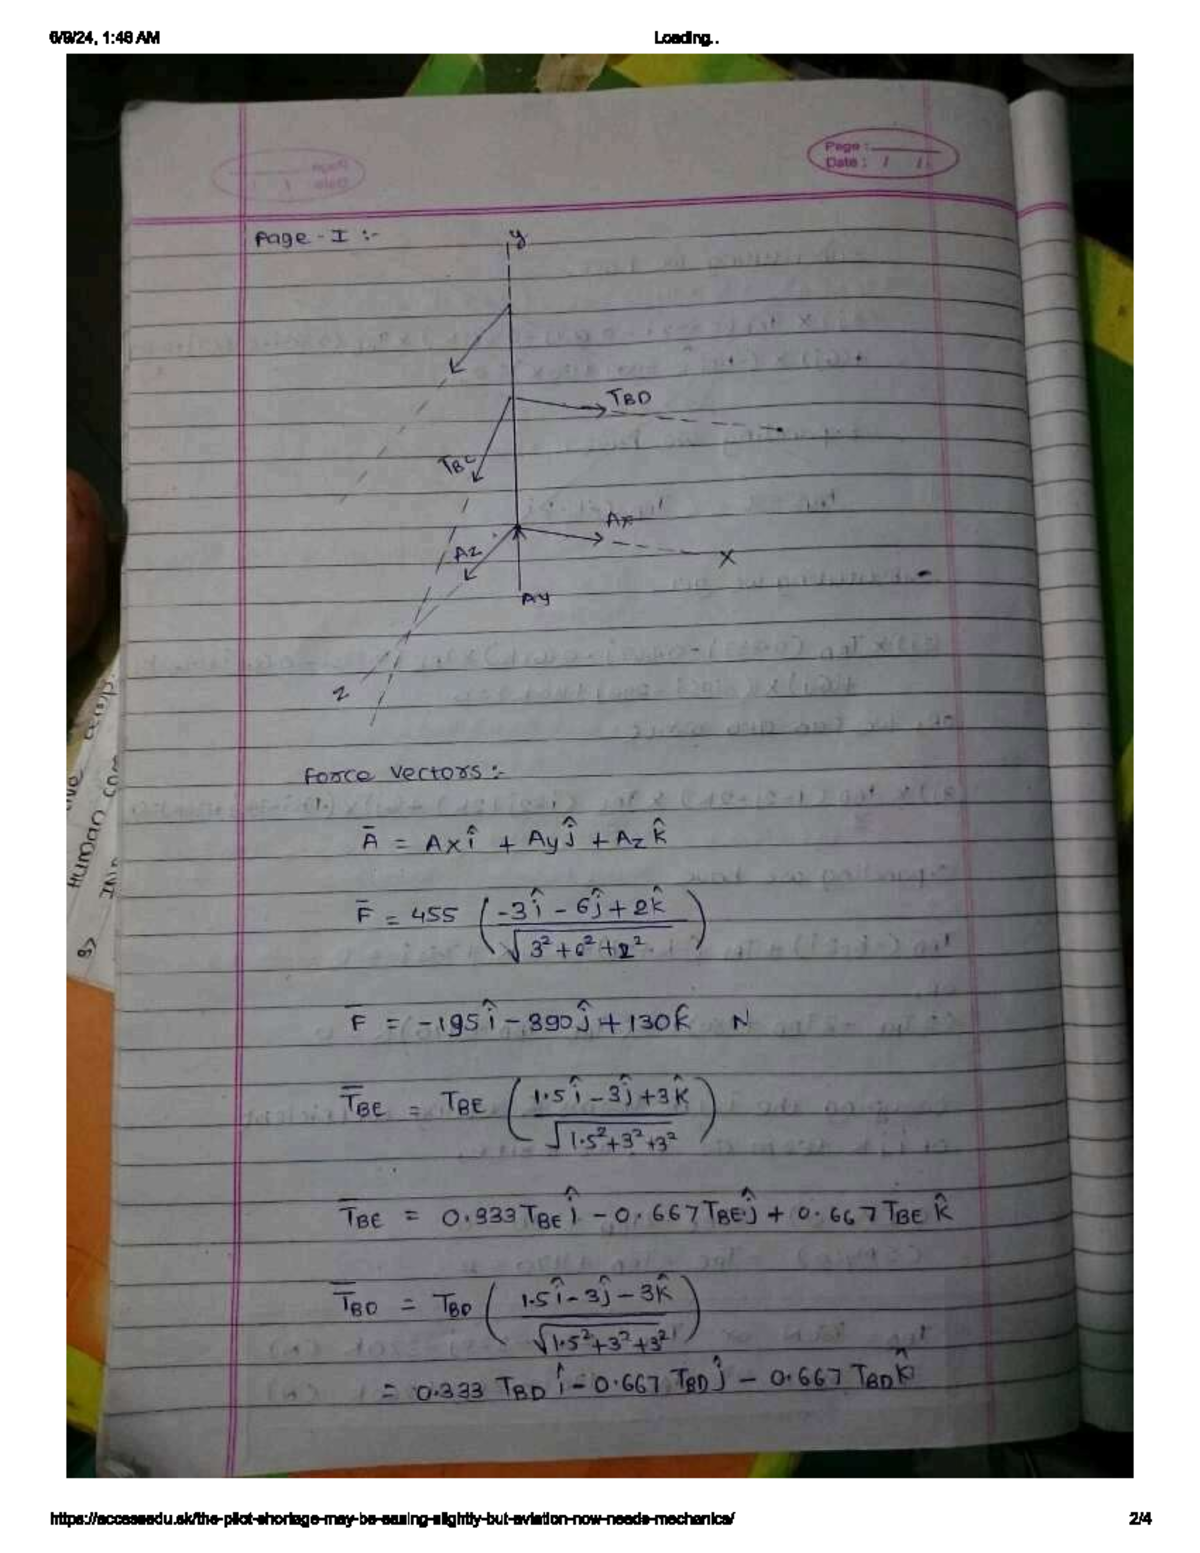 6/9/24, 1:48 AM
Loading..
Page :
Date : / /
Page - I :-
y
TBD
TBC
Ax
Az
X
Ay
Z
Force Vectors :-
A̅ = Ax î + Ay ĵ + Az k̂
F̅ = 455 ( -3î - 6ĵ + 2k̂ / √3²+6²+2² )
F̅ = -195 î - 390 ĵ + 130 k̂ N
T̅BE = TBE ( 1.5 î - 3ĵ + 3k̂ / √1.5²+3²+3² )
T̅BE = 0.333 TBE î - 0.667 TBE ĵ + 0.667 TBE k̂
T̅BD = TBD ( 1.5 î - 3ĵ - 3k̂ / √1.5²+3²+3² )
= 0.333 TBD î - 0.667 TBD ĵ - 0.667 TBD k̂
Human
https://accessedu.sk/the-pilot-shortage-may-be-easing-slightly-but-aviation-now-needs-mechanics/
2/4